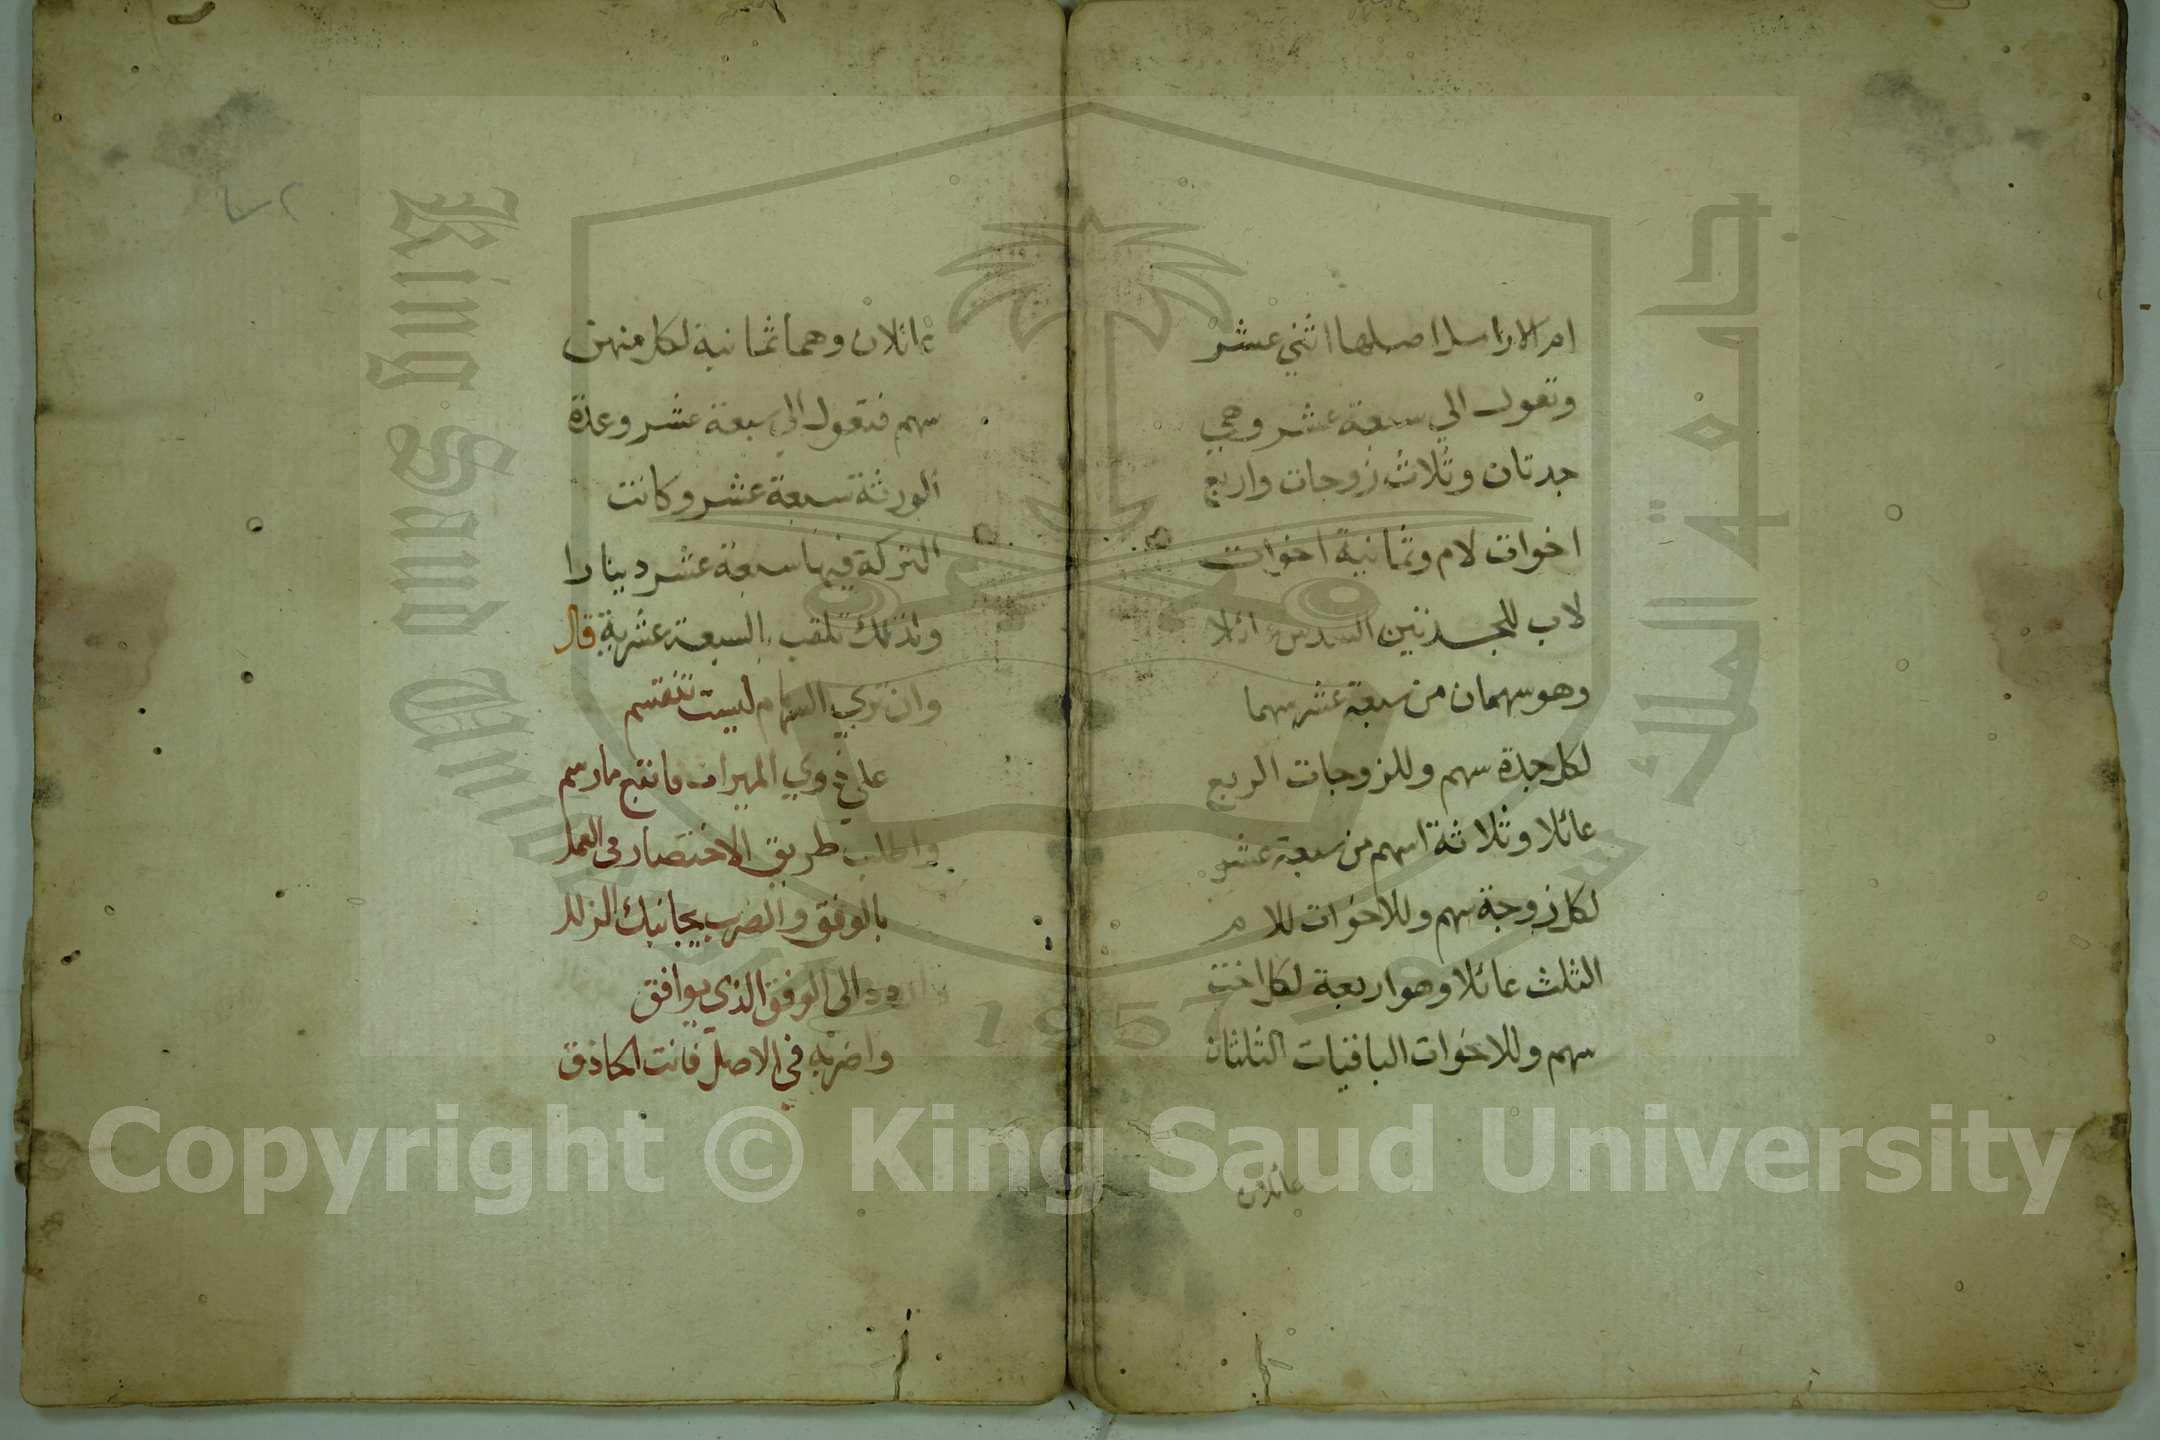 ام الارامل اصلها اثني عشر
وتعول الي سبعة عشر وهي
جدتان وثلاث زوجات واربع
اخوات لام وثمانية اخوات
لاب للجدتين السدس عائلا
وهو سهمان من سبعة عشر سهما
لكل جدة سهم وللزوجات الربع
عائلا وثلاثة اسهم من سبعة عشر
لكل زوجة سهم وللاخوات للام
الثلث عائلا وهو اربعة لكل اخت
سهم وللاخوات الباقيات الثلثان
عائلان
عائلان وهما ثمانية لكل منهن
سهم فتعول الي سبعة عشر وعدة
الورثة سبعة عشر وكانت
التركة فيها سبعة عشر دينارا
ولذلك تلقب بالسبعة عشرية قال
وان تري السهام ليست تنقسم
علي ذوي الميراث فاتبع ما رسم
واطلب طريق الاختصار في العمل
بالوفق والضرب يجانبك الزلل
واردد الى الوفق الذي يوافق
واضربه في الاصل فانت الحاذق
King Saud University
جامعة الملك سعود
1957
Copyright © King Saud University